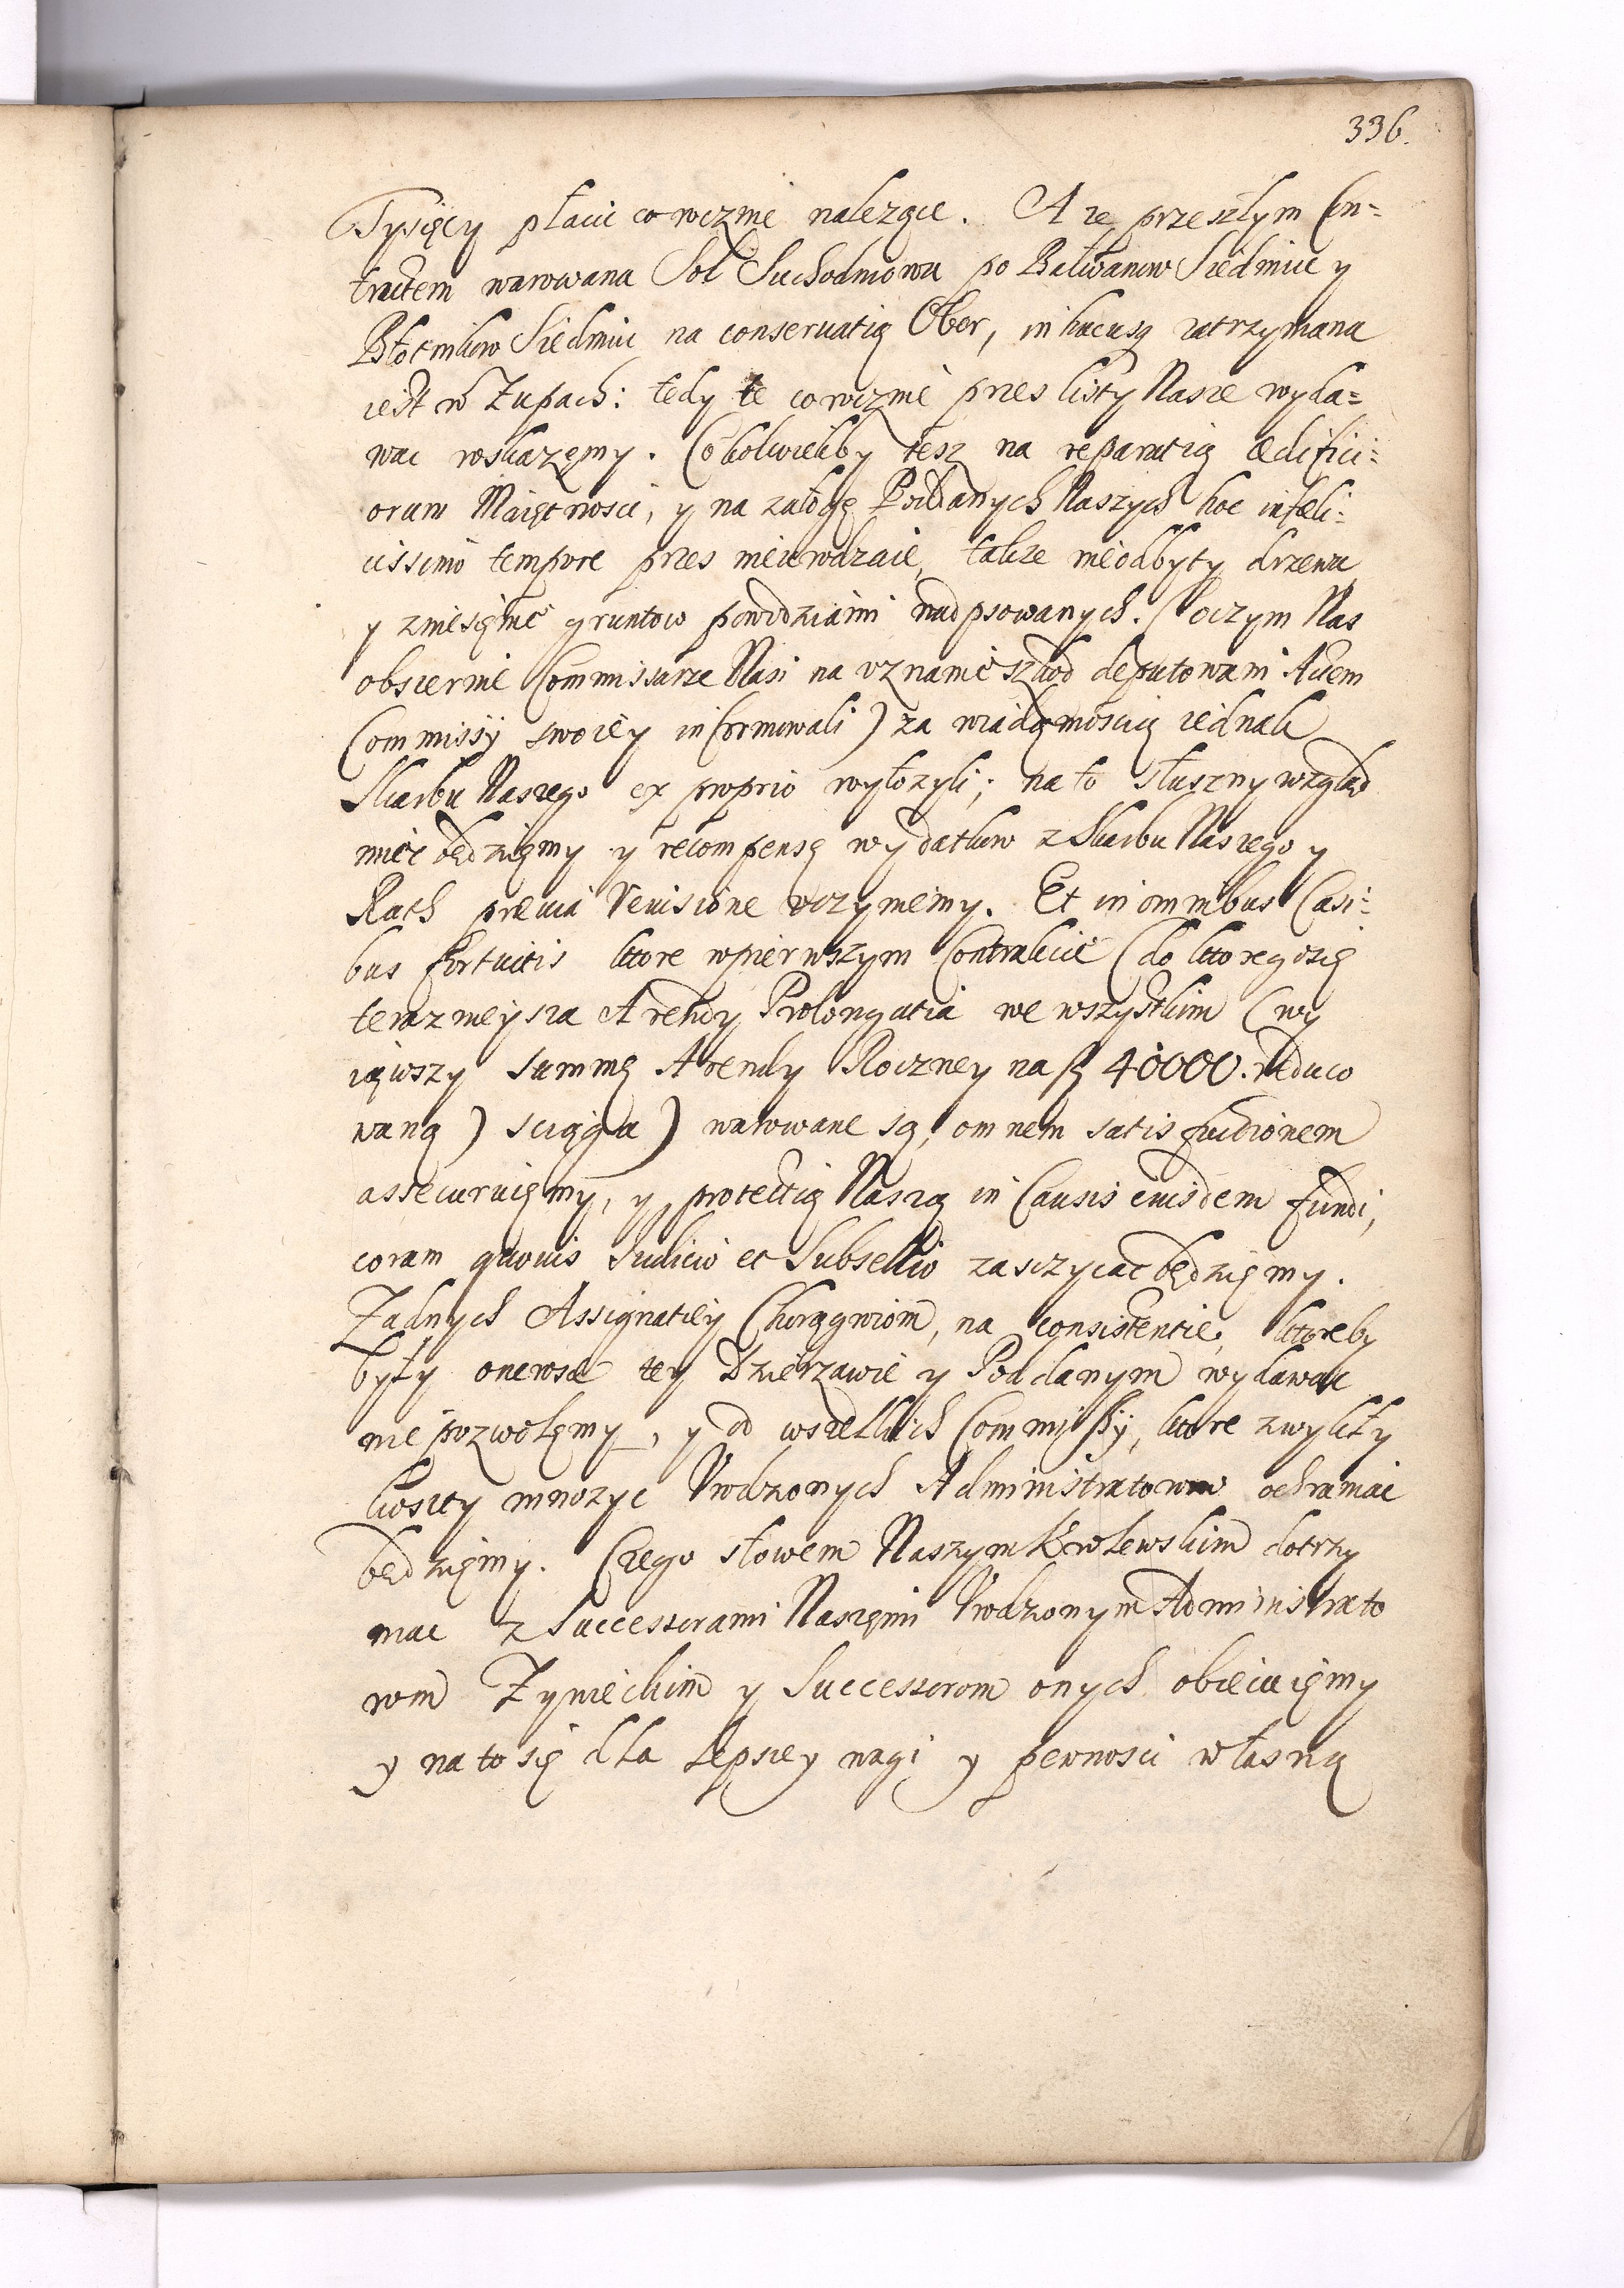 336.
Tysięcy płacić corocznie należące. A ze przeszłym Con=
tractem warowana Sol Suchodniowa po Bałwanow Siedmiu y
Błotnikow Siedmiu na conseruatią Obor, in hacusq zatrzymana
iest w Zupach: tedy te corocznie przes listy Nasze wyda=
wac roskazęmy. Cokolwiekby tesz na reparatią ædifici=
orum Maiętnosci, y na załogę Poddanych Naszych hoc infeli=
cissimo tempore przes nieurodzaie, takze nieodbyty drzewa
y zniesięnie gruntow powodziami nadpsowanych. (oczym Nas
obszernie Commissarze Nasi na vznanie szkod deputowani Actem
Commissÿ swoiey informowali) za wiadomoscią iednak
Skarbu Naszego ex proprio wyłozyli; na to słuszny wzgląd
miec będzięmy y recompensę wydatkow z Skarbu Naszego y
Rach præuia Reuisione vczyniemy. Et in omnibus Casi=
bus fortuitis ktore wpierwszym Contrakcie (do ktoregoszię
teraznieysza Arendy Prolongatia we wszystkim (wy
iąwszy summę Arendy Roczney na fl 40000. reduco
waną) sciąga) warowane są, omnem satisfactionem
assecuruięmy, y protectią Naszą in Causis eiusdem fundi,
coram quouis Iudicio et Subsellio zasczycac będzięmy.
Zadnych Assignatiey Chorągwiom, na consistentie, ktoreby
były onerosæ tey Dzierzawie y Poddanym wydawac
nie pozwolęmy, y od wszelkich Commissÿ, ktore zwykły
koszty mnozyc Vrodzonych Administratorow ochraniac
będzięmy. Czego słowem Naszym Krolewskim dotrzy
mac z Successorami Naszęmi Vrodzonym Administrato
rom Zynieckim y Successorom onych obiecuięmy
y na to się dla lepszey wagi y pewnosci własną